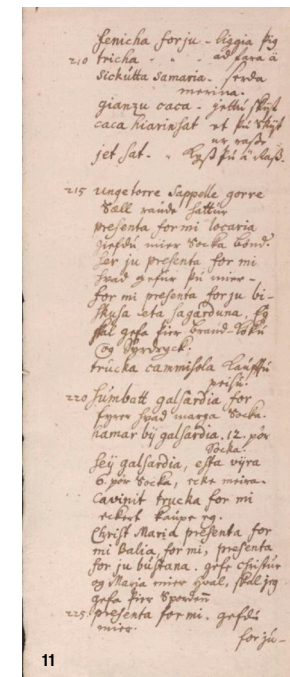 fenicha for ju - liggia þig
210 tricha - - ad fara á
sickutta Samaria. serda
merina.
gianzu caca - jettu skijt
caca hiarinsat et þu skijt
ur rasse
jet sat. - kyss þu á Rass.
215 ungetorre Sappelle gorre
Sæll raude hattur
presenta for mi locaria
giefdu mier socka bond.
ser ju presenta for mi
hvad gefur þu mier -
for mi presenta for ju bi-
skusa eta sagarduna, Eg
skal gefa þier braud-köku
og Syrdryck.
trucka cammisola kaufftu
peisu.
220 sumbatt galsardia for
fyrer hvad marga Socka.
hamar bÿ galsardia. 12. pör
Socka.
seÿ galsardia, esta vÿra
6. pör Socka, ecke meira.
Cavinit trucka for mi
eckert kaupe eg.
Christ Maria presenta for
mi Balia, for mi, presenta
for ju bustana. gefe Christur
og Maria mier hval, skal jeg
gefa þier Spordenn
225 presenta for mi. gefdu
mier.
for ju -
11